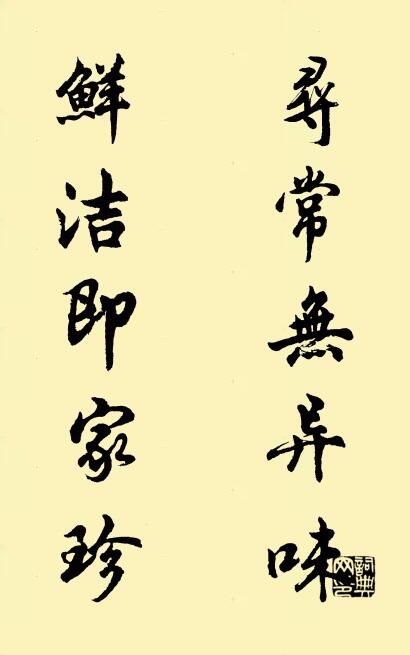 尋常無异味
鮮洁即家珍
詞典网